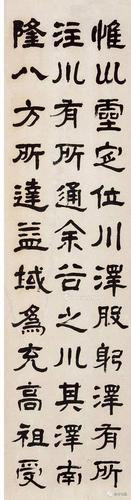 惟巛靈定位川澤股躬澤有所
注川有所通余谷之川其澤南
隆八方所達益域爲充高祖受